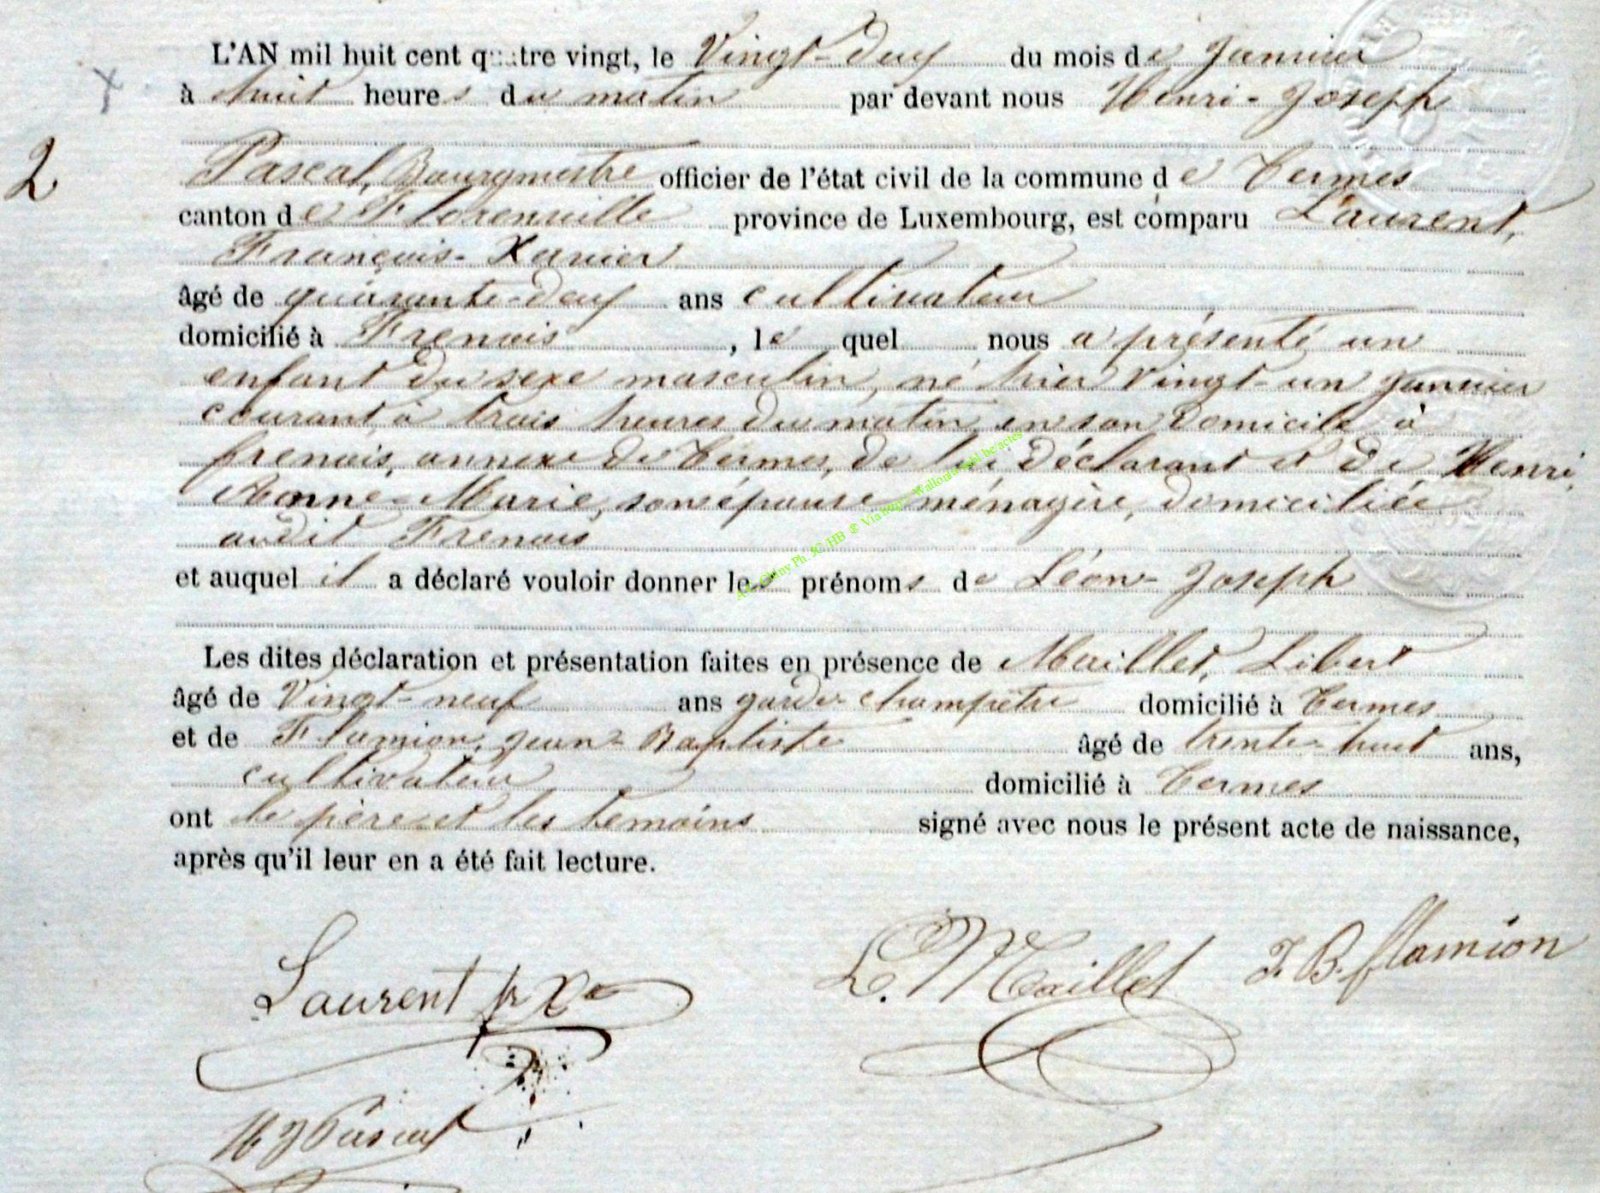 L'AN mil huit cent quatre vingt, le Vingt-deux du mois de Janvier
à huit heures du matin par devant nous Henri-Joseph
2
Pascal, Bourgmestre officier de l'état civil de la commune de Termes
canton de Florenville province de Luxembourg, est comparu Laurent,
François-Xavier
âgé de quarante-deux ans cultivateur
domicilié à Frenois, le quel nous a présenté un
enfant du sexe masculin, né hier vingt-un janvier
courant, à trois heures du matin, en son domicile à
frenois, annexe de Termes, de lui déclarant et de Henri,
Anne-Marie, son épouse ménagère, domiciliée
audit Frenois
et auquel il a déclaré vouloir donner les prénoms de Léon-Joseph
Les dites déclaration et présentation faites en présence de Maillet, Libert
âgé de Vingt-neuf ans garde champêtre domicilié à Termes
et de Flamion, Jean-Baptiste âgé de trente-huit ans,
cultivateur domicilié à Termes
ont le père et les témoins signé avec nous le présent acte de naissance,
après qu'il leur en a été fait lecture.
Laurent fr Xer
L. Maillet J. B. flamion
H J Pascal